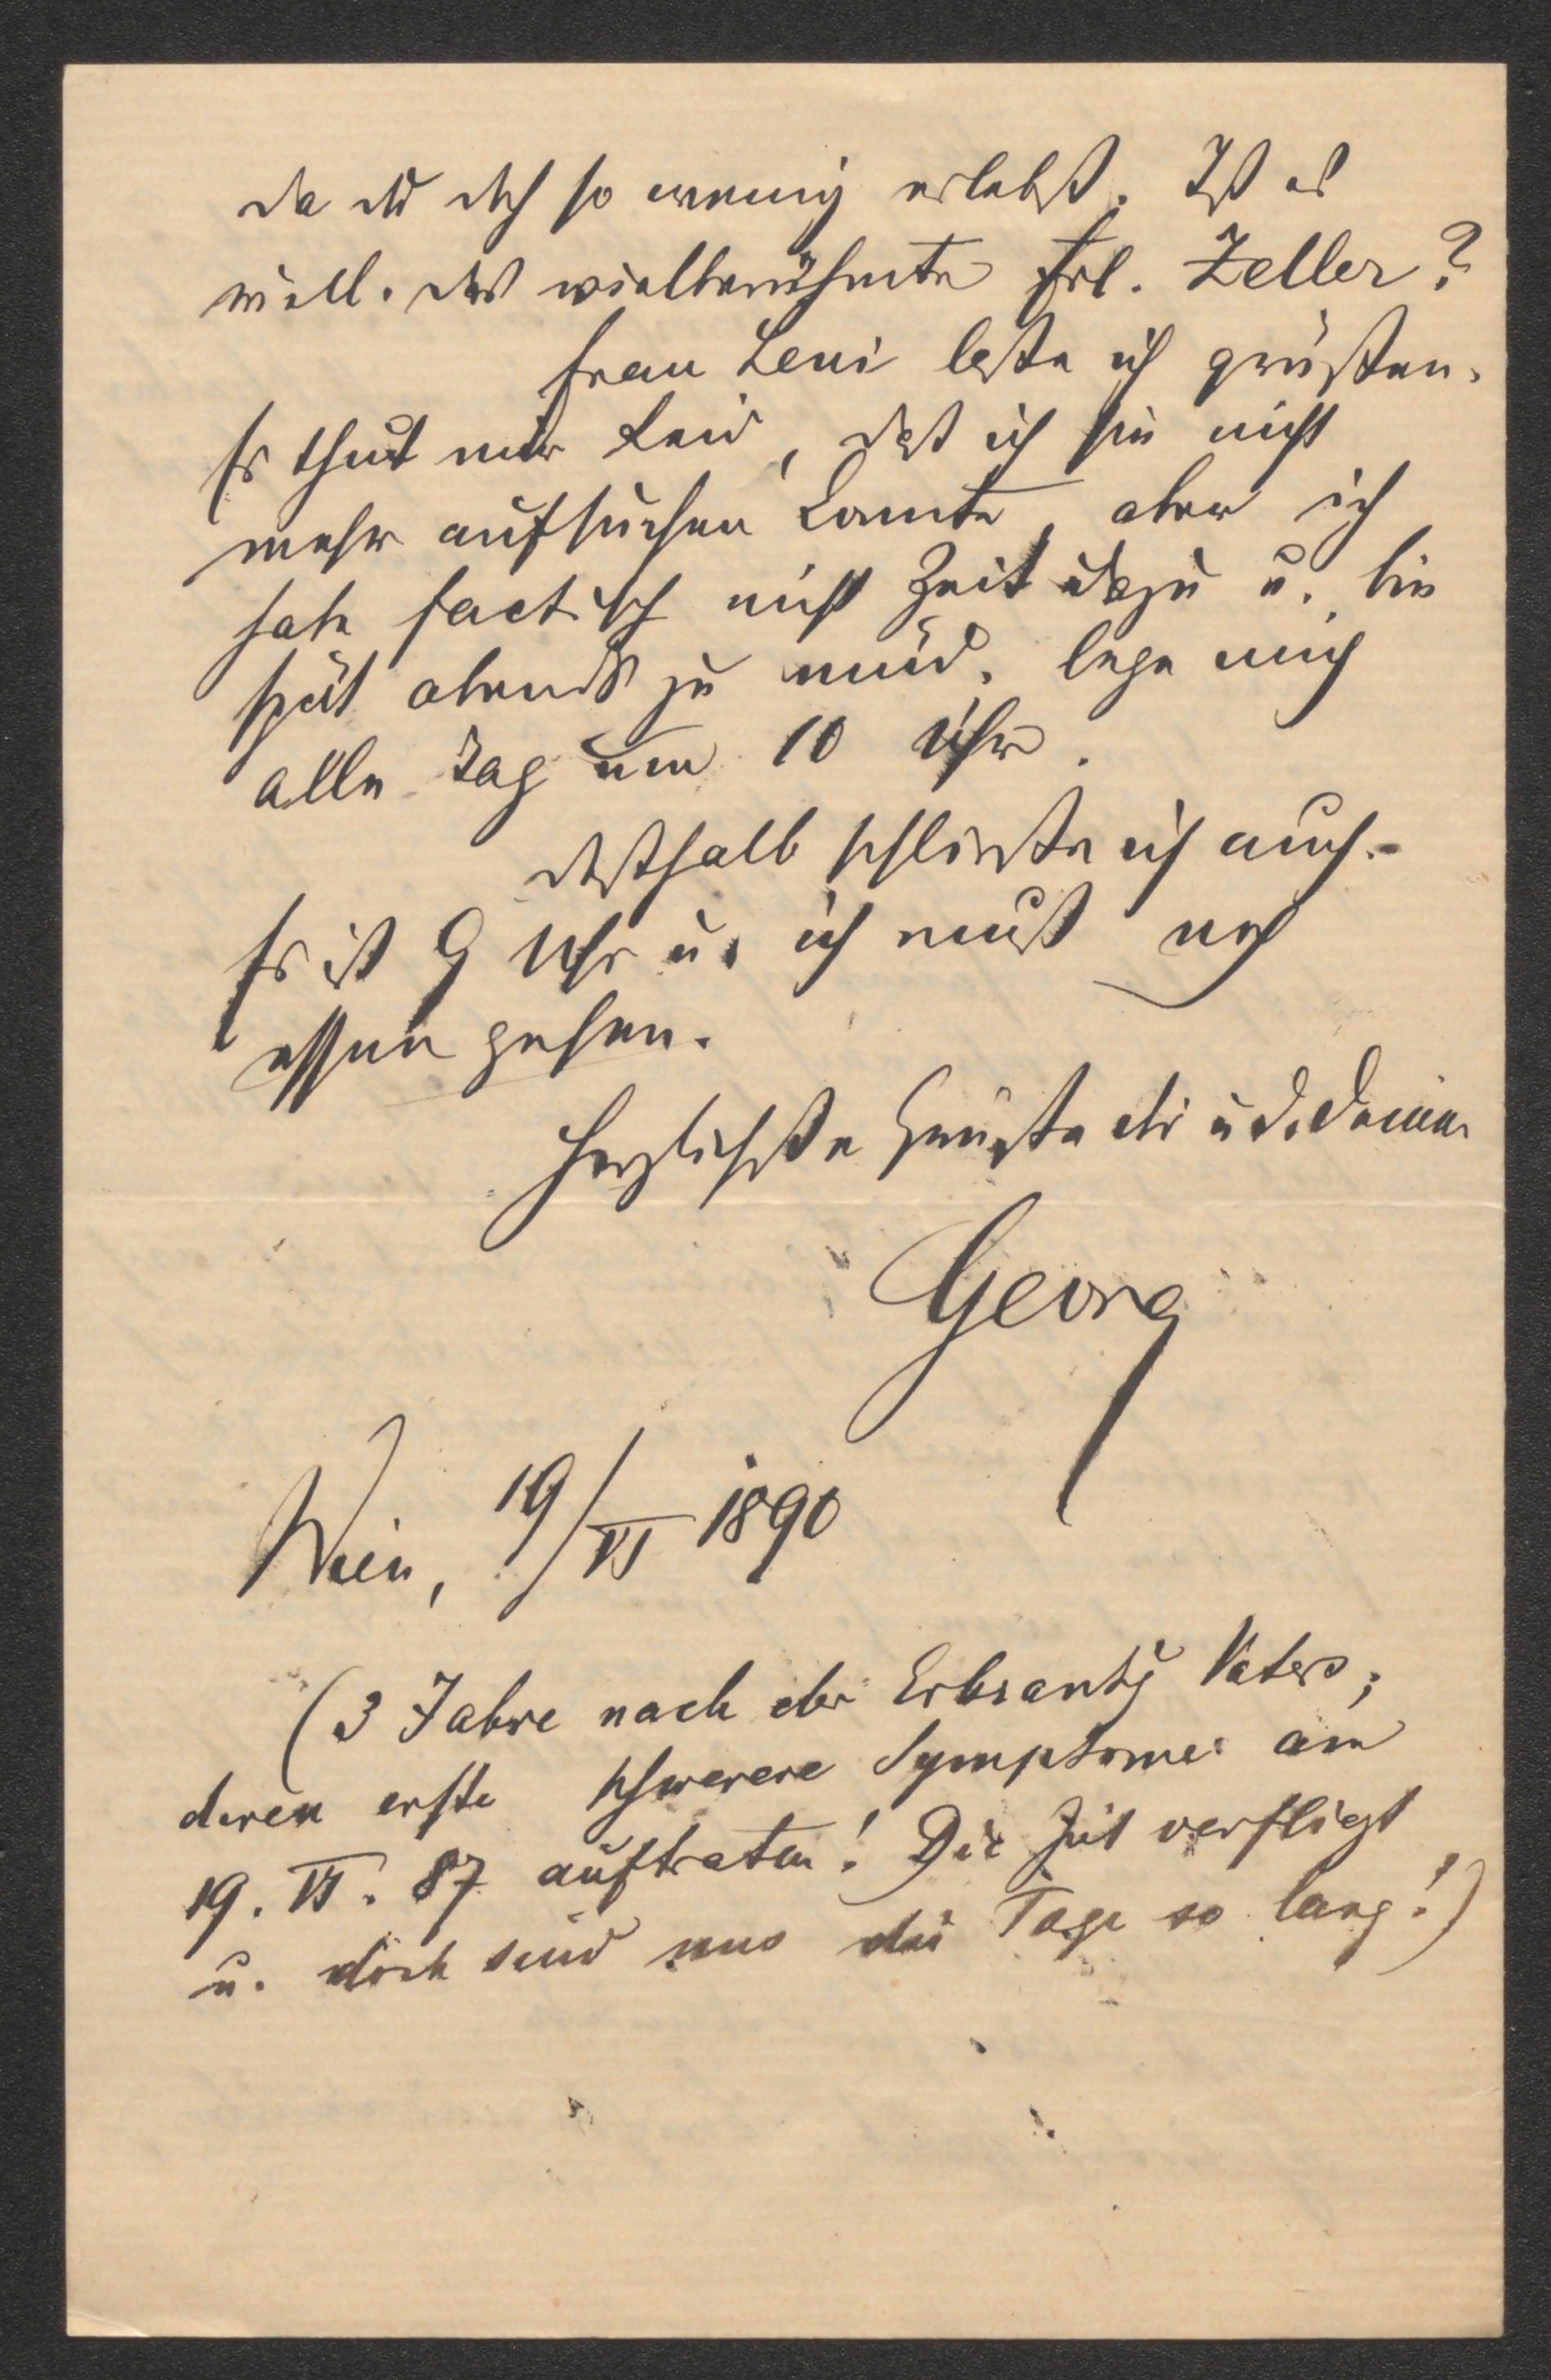 da du doch so wenig erlebst. Ist es
viell. das vielberühmte Frl. Zeller?
Frau Leni laße ich grüßen.
Es thut mir Leid, daß ich sie nicht
mehr aufsuchen konnte, aber ich
hab factisch nicht Zeit dazu u. bin
spät abends zu müd. lege mich
alle Tag um 10 Uhr.
deßhalb schließe ich auch.-
Es ist 9 Uhr u. ich muß noch
essen gehen.
Herzlichste Grüße dir u d. Deinen
Georg
Wien, 19/VI 1890
(3 Jahre nach der Erkrankg Vaters,
deren erste schwerere Symptome am
19. VI. 87 auftraten! Die Zeit verfliegt
u. doch sind uns die Tage so lang!)